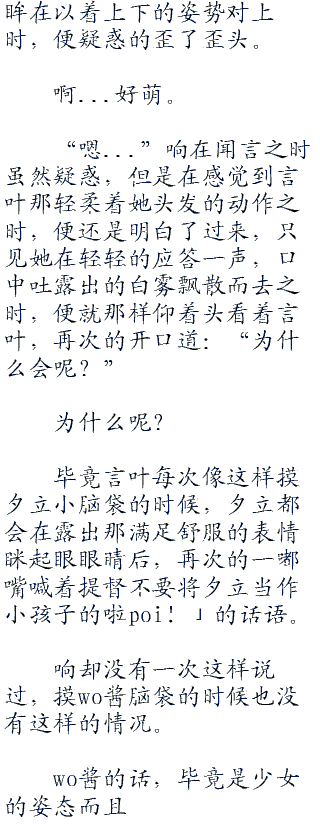 眸在以着上下的姿势对上
时，便疑惑的歪了歪头。
啊...好萌。
“嗯...”响在闻言之时
虽然疑惑，但是在感觉到言
叶那轻柔着她头发的动作之
时，便还是明白了过来，只
见她在轻轻的应答一声，口
中吐露出的白雾飘散而去之
时，便就那样仰着头看着言
叶，再次的开口道：“为什
么会呢？”
为什么呢？
毕竟言叶每次像这样摸
夕立小脑袋的时候，夕立都
会在露出那满足舒服的表情
眯起眼眼睛后，再次的一嘟
嘴喊着提督不要将夕立当作
小孩子的啦poi！」的话语。
响却没有一次这样说
过，摸wo酱脑袋的时候也没
有这样的情况。
wo酱的话，毕竟是少女
的姿态而且